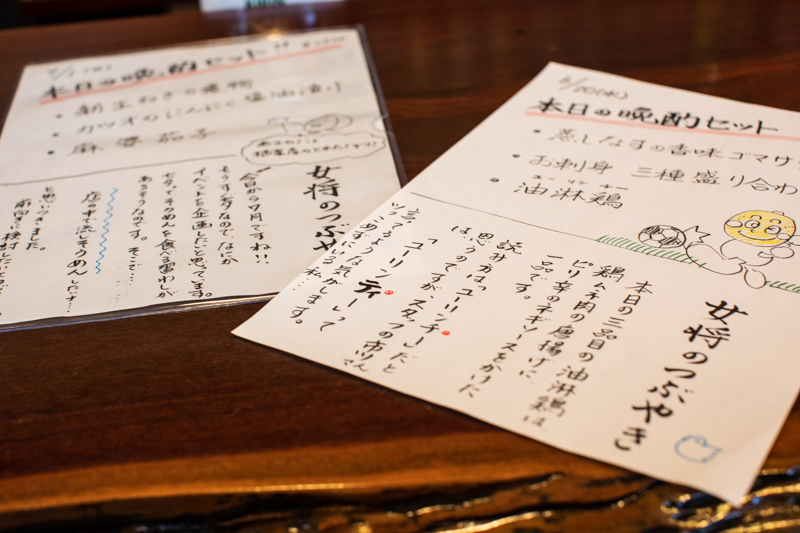 本日の晩酌セット
・新玉ねぎの
・カツオのにんにく醤油漬け
・麻婆茄子
女将のつぶや
今日から7月ですね!!
もうすぐ七夕なので、なにか
イベントを企画したいと思っています。
七夕ってそうめんを食べる習わしが
あるそうなのです。そこで…
店の中で流しそうめんしたい…
と思いつきました。
6/20(水)
本日の晩酌セット
・蒸しなすの香味ゴマ
・お刺身 三種盛り合わ
ユーリンチー
・油淋鶏
女将のつぶやき
本日の三品目の油淋鶏は
鶏ムネ肉の唐揚げに、
ピリ辛のネギソースをかけた
一品です。
読み方は「ユーリンチー」だと
思うのですが、スタッフの市川さん
は、
「ユーリンティー」って
言ってるような気がします。
気にしている私…。